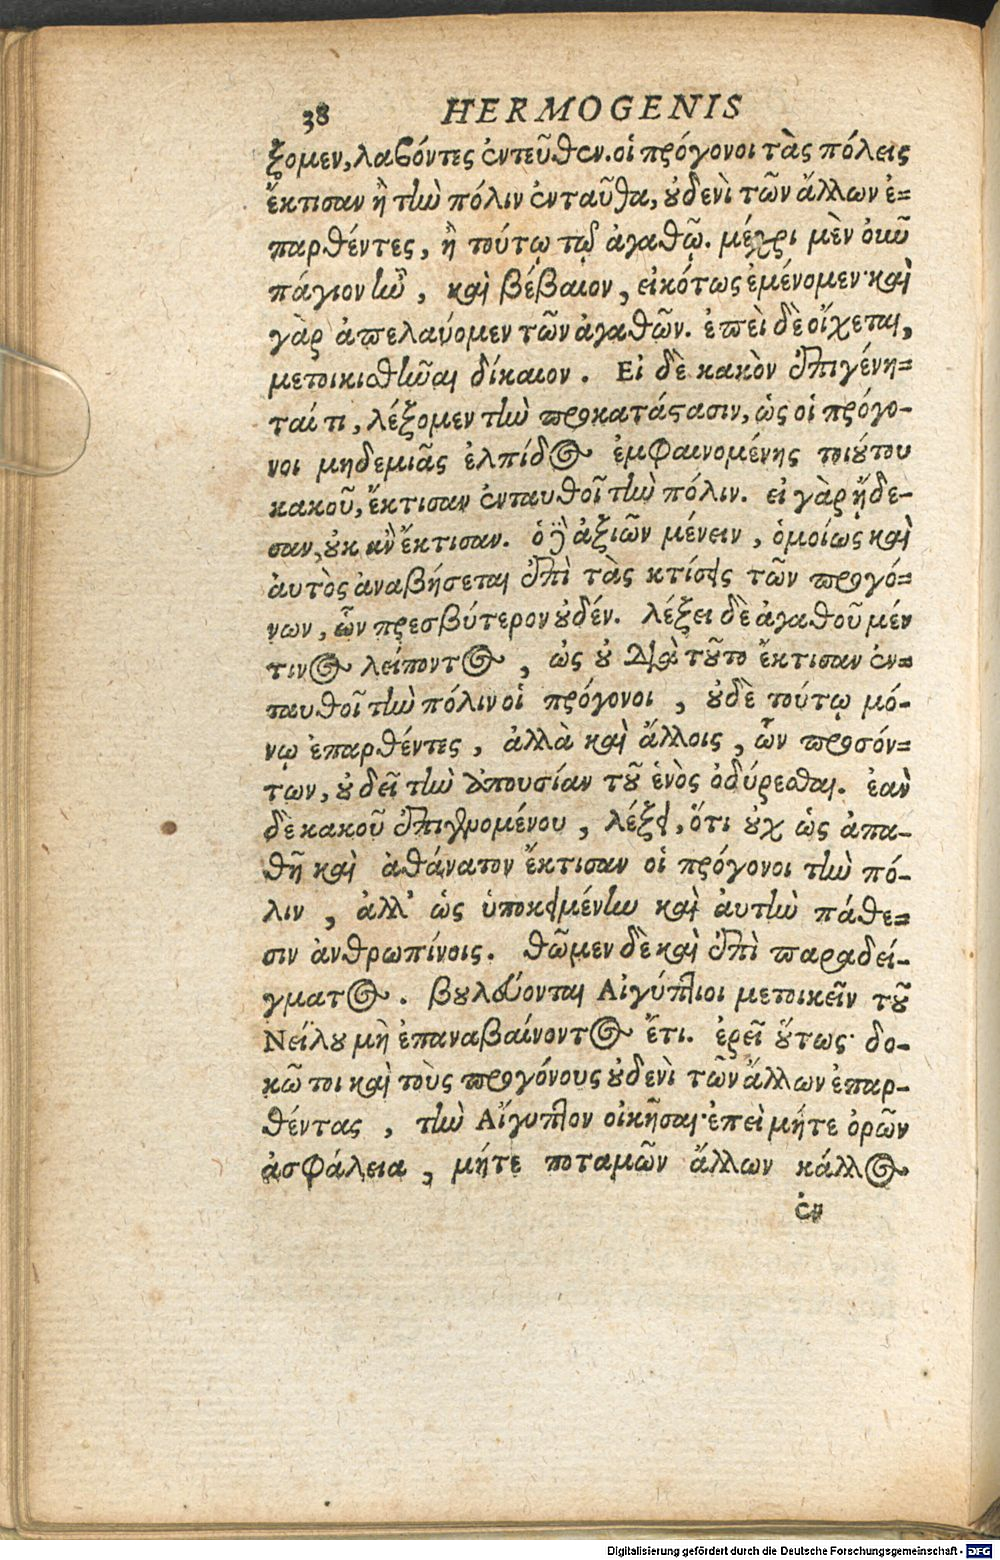 38 HERMOGENIS
ξομεν, λαβόντες ἐντεῦθεν. οἱ πρόγονοι τὰς πόλεις
ἔκτισαν ἢ τὴν πόλιν ἐνταῦθα, οὐδενὶ τῶν ἄλλων ἐ-
παρθέντες, ἢ τούτῳ τῷ ἀγαθῷ. μέχρι μὲν οὖν
πάγιον ἦν, καὶ βέβαιον, εἰκότως ἐμένομεν· καὶ
γὰρ ἀπελαύομεν τῶν ἀγαθῶν. ἐπεὶ δὲ οἴχεται,
μετοικισθῆναι δίκαιον. Εἰ δὲ κακὸν ἐπιγένη-
ταί τι, λέξομεν τὴν προκατάστασιν, ὡς οἱ πρόγο-
νοι μηδεμιᾶς ἐλπίδος ἐμφαινομένης τοιούτου
κακοῦ, ἔκτισαν ἐνταυθοῖ τὴν πόλιν. εἰ γὰρ ᾔδε-
σαν, οὐκ ἂν ἔκτισαν. ὁ δὲ ἀξιῶν μένειν, ὁμοίως καὶ
ἀυτὸς ἀναβήσεται ἐπὶ τὰς κτίσεις τῶν προγό-
νων, ὧν πρεσβύτερον οὐδέν. λέξει δὲ ἀγαθοῦ μέν
τινος λείποντος, ὡς οὐ διὰ τοῦτο ἔκτισαν ἐν-
ταυθοῖ τὴν πόλιν οἱ πρόγονοι, οὐδὲ τούτῳ μό-
νῳ ἐπαρθέντες, ἀλλὰ καὶ ἄλλοις, ὧν προσόν-
των, οὐ δεῖ τὴν ἀπουσίαν τοῦ ἑνὸς ὀδύρεσθαι. ἐὰν
δὲ κακοῦ ἐπιγενομένου, λέξει, ὅτι οὐχ ὡς ἀπα-
θῆ καὶ ἀθάνατον ἔκτισαν οἱ πρόγονοι τὴν πό-
λιν, ἀλλ' ὡς ὑποκειμένην καὶ ἀυτὴν πάθε-
σιν ἀνθρωπίνοις. θῶμεν δὲ καὶ ἐπὶ παραδεί-
γματος. βουλεύονται Αἰγύπτιοι μετοικεῖν τοῦ
Νείλου μὴ ἐπαναβαίνοντος ἔτι. ἐρεῖ οὕτως· δο-
κῶ τοι καὶ τοὺς προγόνους οὐδενὶ τῶν ἄλλων ἐπαρ-
θέντας, τὴν Αἴγυπτον οἰκῆσαι· ἐπεὶ μήτε ὀρῶν
ἀσφάλεια, μήτε ποταμῶν ἄλλων κάλλος
ἐν
Digitalisierung gefördert durch die Deutsche Forschungsgemeinschaft - DFG